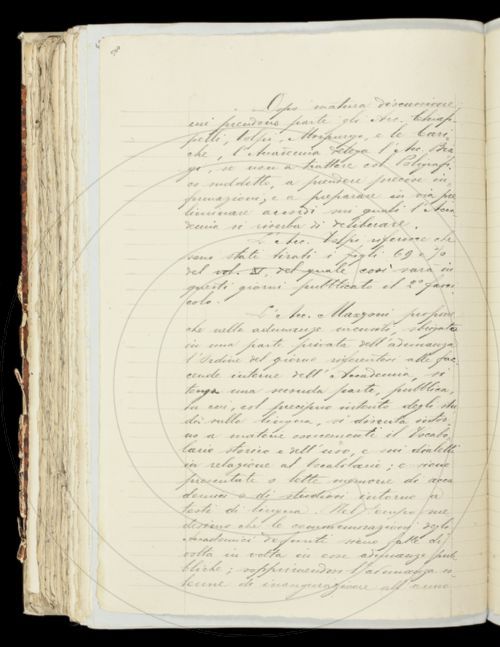 Dopo matura discussione,
cui prendono parte gli Acc. Chiap-
pelli, Volpi, Morpurgo, e le Cari-
che, l'Accademia delega l'Acc. Bia-
gi, se non a trattare col Poligrafi-
co suddetto, a prendere precise in-
formazioni, e a preparare in via pre-
liminare accordi sui quali l'Acca-
demia si riserba di deliberare.
L'Acc. Volpi riferisce che
sono stati tirati i fogli 69 e 70
del vol. XI, del quale così sarà in
questi giorni pubblicato il 2º fasci-
colo.
L'Acc. Mazzoni propone
che nelle adunanze mensili, sbrigato
in una parte privata dell'adunanza
l'ordine del giorno riferentesi alle fac-
cende interne dell'Accademia, si
tenga una seconda parte, pubblica,
in cui, col precipuo intento degli stu-
di sulla lingua, si discuta intor-
no a materie concernenti il Vocabo-
lario storico e dell'uso, e sui dialetti
in relazione al Vocabolario; e siano
presentate o lette memorie di acca-
demici o di studiosi intorno a
testi di lingua. Nel tempo me-
desimo che le commemorazioni degli
Accademici defunti siano fatte di
volta in volta in esse adunanze pub-
bliche; sopprimendosi l'adunanza so-
lenne di inaugurazione all'anno